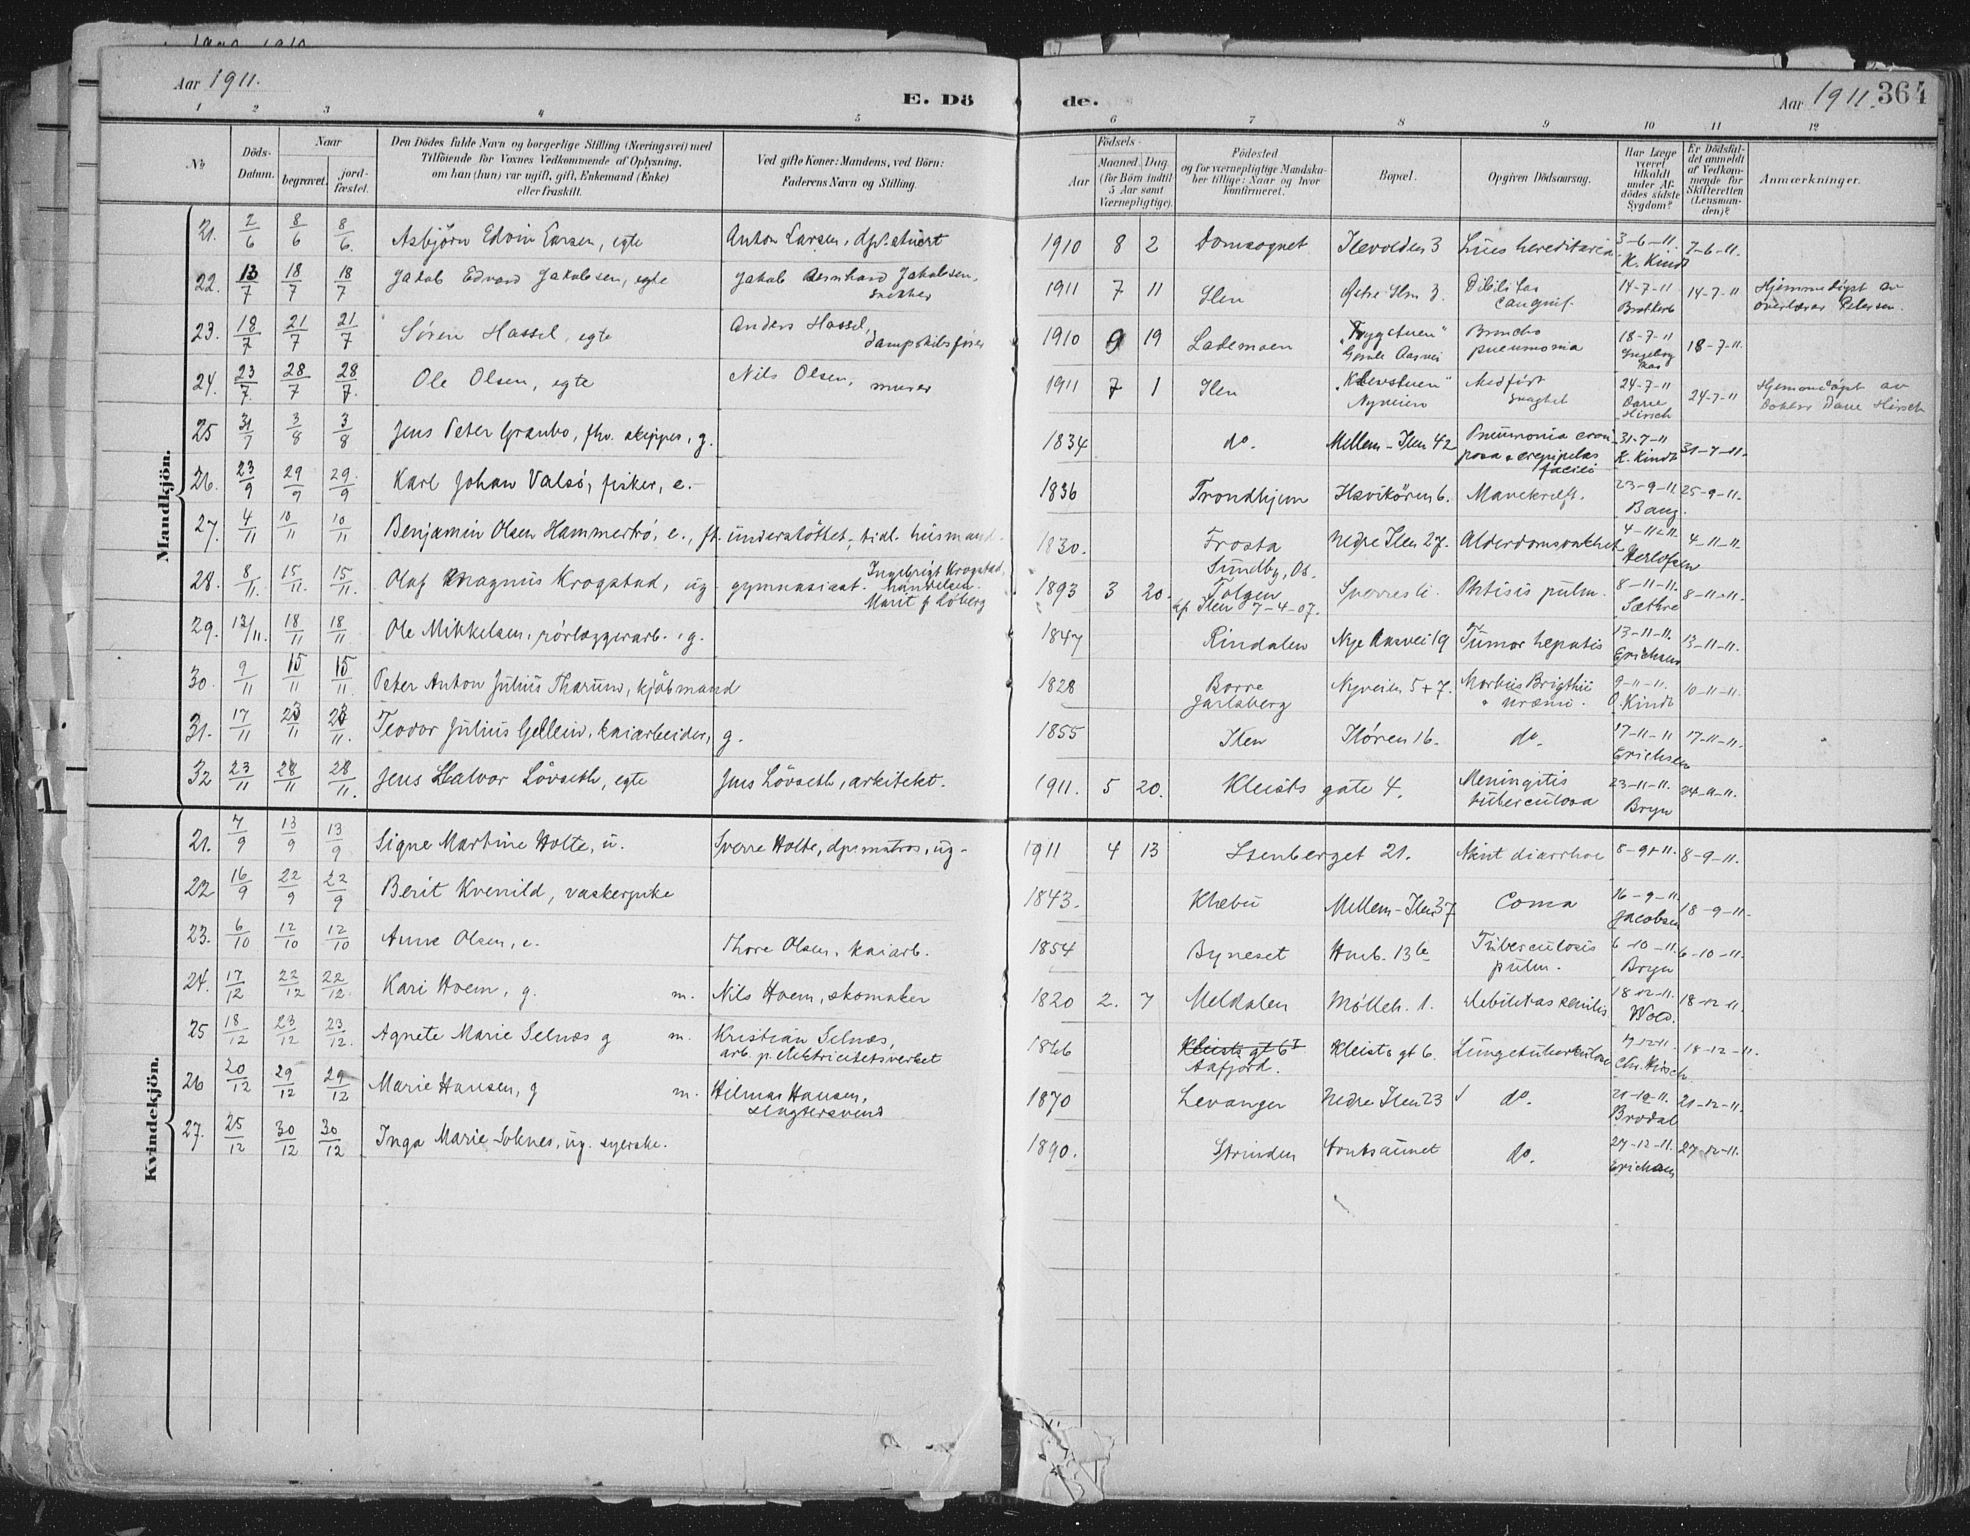 Aar 1911.
E. Dö
de.
Aar 1911.
364
1 2 3 4 5 6 7 8 9 10 11 12
No.
Döds-Datum.
Naar
begravet.
jord-fæstet.
Den Dödes fulde Navn og borgerlige Stilling (Næringsvei) med
Tilföiende for Voxnes Vedkommende af Oplysning,
om han (hun) var ugift, gift, Enkemand (Enke)
eller fraskilt.
Ved gifte Koner: Mandens, ved Börn:
Faderens Navn og Stilling.
Födsels-
Aar
Maaned. Dag.
(for Börn indtil
5 Aar samt
Værnepligtige).
Födested
og for værnepligtige Mandska-
ber tillige: Naar og hvor
konfirmeret.
Bopæl.
Opgiven Dödsaarsag.
Har Læge
været
tilkaldt
under Af-
dödes sidste
Sygdom?
Er Dödsfal-
det anmeldt
af Vedkom-
mende for
Skifteretten
(Lensman-
den)?
Anmærkninger.
Mandkjön.
21. 2/6 8/6 8/6. Asbjörn Edvin Larsen, egte Anton Larsen, dpsk. stuert 1910 8 2 Domsognet Ilevolden 3 Lues hereditaria 3-6-11. K. Kindt 7-6-11.
22. 13/7 18/7 18/7 Jakob Edvard Jakobsen, egte Jakob Bernhard Jakobsen, snekker 1911 7 11 Ilen Østre Ilen 3. Debilitas congenit. 14-7-11 14-7-11 Hjemmedöpt av overlærer Petersen.
23. 18/7 21/7 21/7 Sören Hassel, egte Anders Hassel, dampskibsförer 1910 9 19 Lademoen "Tryggstuen" Gamle Aasvei Broncho pneumonia 18-7-11 Ingeborg Aas 18-7-11.
24. 23/7. 28/7 28/7. Ole Olsen, egte Nils Olsen, murer 1911 7 1 Ilen Nyveien Medfödt svaghet 24-7-11 Hirsch 24-7-11 Hjemmedöpt av Doktor Hirsch
25 31/7 3/8 3/8 Jens Peter Granbo, fhv. skipper, g. 1834 do. Mellem-Ilen 42 Pneumonia crou-posa & erysipelas faciei 31-7-11 K. Kindt 31-7-11.
26. 23/9 29/9 29./9 Karl Johan Valsö, fisker, e. 1836 Trondhjem Ilsvikören 6. Mavekræft. 23-9-11. Bang. 25-9-11.
27. 4/11 10/11 10/11 Benjamin Olsen Hammertrö, e., ft. understöttet, tidl. husmand. 1830. Frosta Nedre Ilen 27. Alderdomssvakhet 4-11-11. Herlofsen 4-11-11.
28. 8/11. 15/11. 15/11. Olaf Magnus Krogstad, ug. gymnasiast. Ingebrigt Krogstad, handelsm. Marit f. Löberg 1893 3 20. Sundby, Os. Tolgen kf. Ilen 7-4-07. Sverresli. Phtisis pulm. 8-11-11. Sæthre 8-11-11.
29. 12/11. 18/11 18/11 Ole Mikkelsen, rörlæggerarb., g. 1847 Rindalen Nye Aasvei 19 Tumor hepatis 13-11-11. Erichsen 13-11-11.
30. 9/11 15/11 15/11. Peter Anton Julius Tharum, kjöbmand 1828 Borre Jarlsberg Nyveien 5+7. Morbus Brigthii & uræmi. 9-11-11. O. Kindt 10-11-11.
31. 17/11 23/11 23/11. Teodor Julius Gellein, kaiarbeider, g. 1855 Ilen Ilören 16. do. 17-11-11 Erichsen 17-11-11.
32 23/11 28/11 28/11. Jens Halvor Lövseth, egte Jens Lövseth, arkitekt. 1911. 5 20. Kleists gate 4. Meningitis tuberculosa 23-11-11. Bryn 24-11-11.
Kvindekjön.
21. 7/9 13/9 13/9 Signe Martine Holte, u. Sverre Holte, dpsmatros, ug. 1911 4 13 Stenberget 21. Akut diarrhoe 8-9-11. 8-9-11.
22 16/9 22/9 22/9 Berit Kvenild, vaskerpike 1843. Klæbu Mellem-Ilen 37 Coma 16-9-11. Jacobsen 18-9-11.
23. 6/10 12/10 12/10 Anne Olsen, e. Thore Olsen, kaiarb. 1854 Byneset Hmb. 13b Tuberculosis pulm. 6-10-11. Bryn 6-10-11.
24. 17/12 22/12 22/12. Kari Hoem, g. m. Nils Hoem, skomaker 1820 2. 7 Meldalen Mölleb. 1. Debilitas senilis 18-12-11. Wold. 18-12-11.
25 18/12 23/12 23/12. Agnete Marie Selnæs g m. Kristian Selnæs, arb. p. elektricitetsverket 1866 Kleists gt 6 Aafjord. Kleists gt 6. Lungetuberkulose Chr. Hirsch. 18-12-11.
26 20/12 29/12 29/12 Marie Hansen, g m. Hilmar Hansen, slagtersvend 1870 Levanger Nedre Ilen 23 do. 21-12-11. Brodal 21-12-11.
27. 25/12 30/12 30/12 Inga Marie Solnes, ug. syerske. 1890. Strinden Tontsaunet do. 27-12-11. Erichsen 27-12-11.